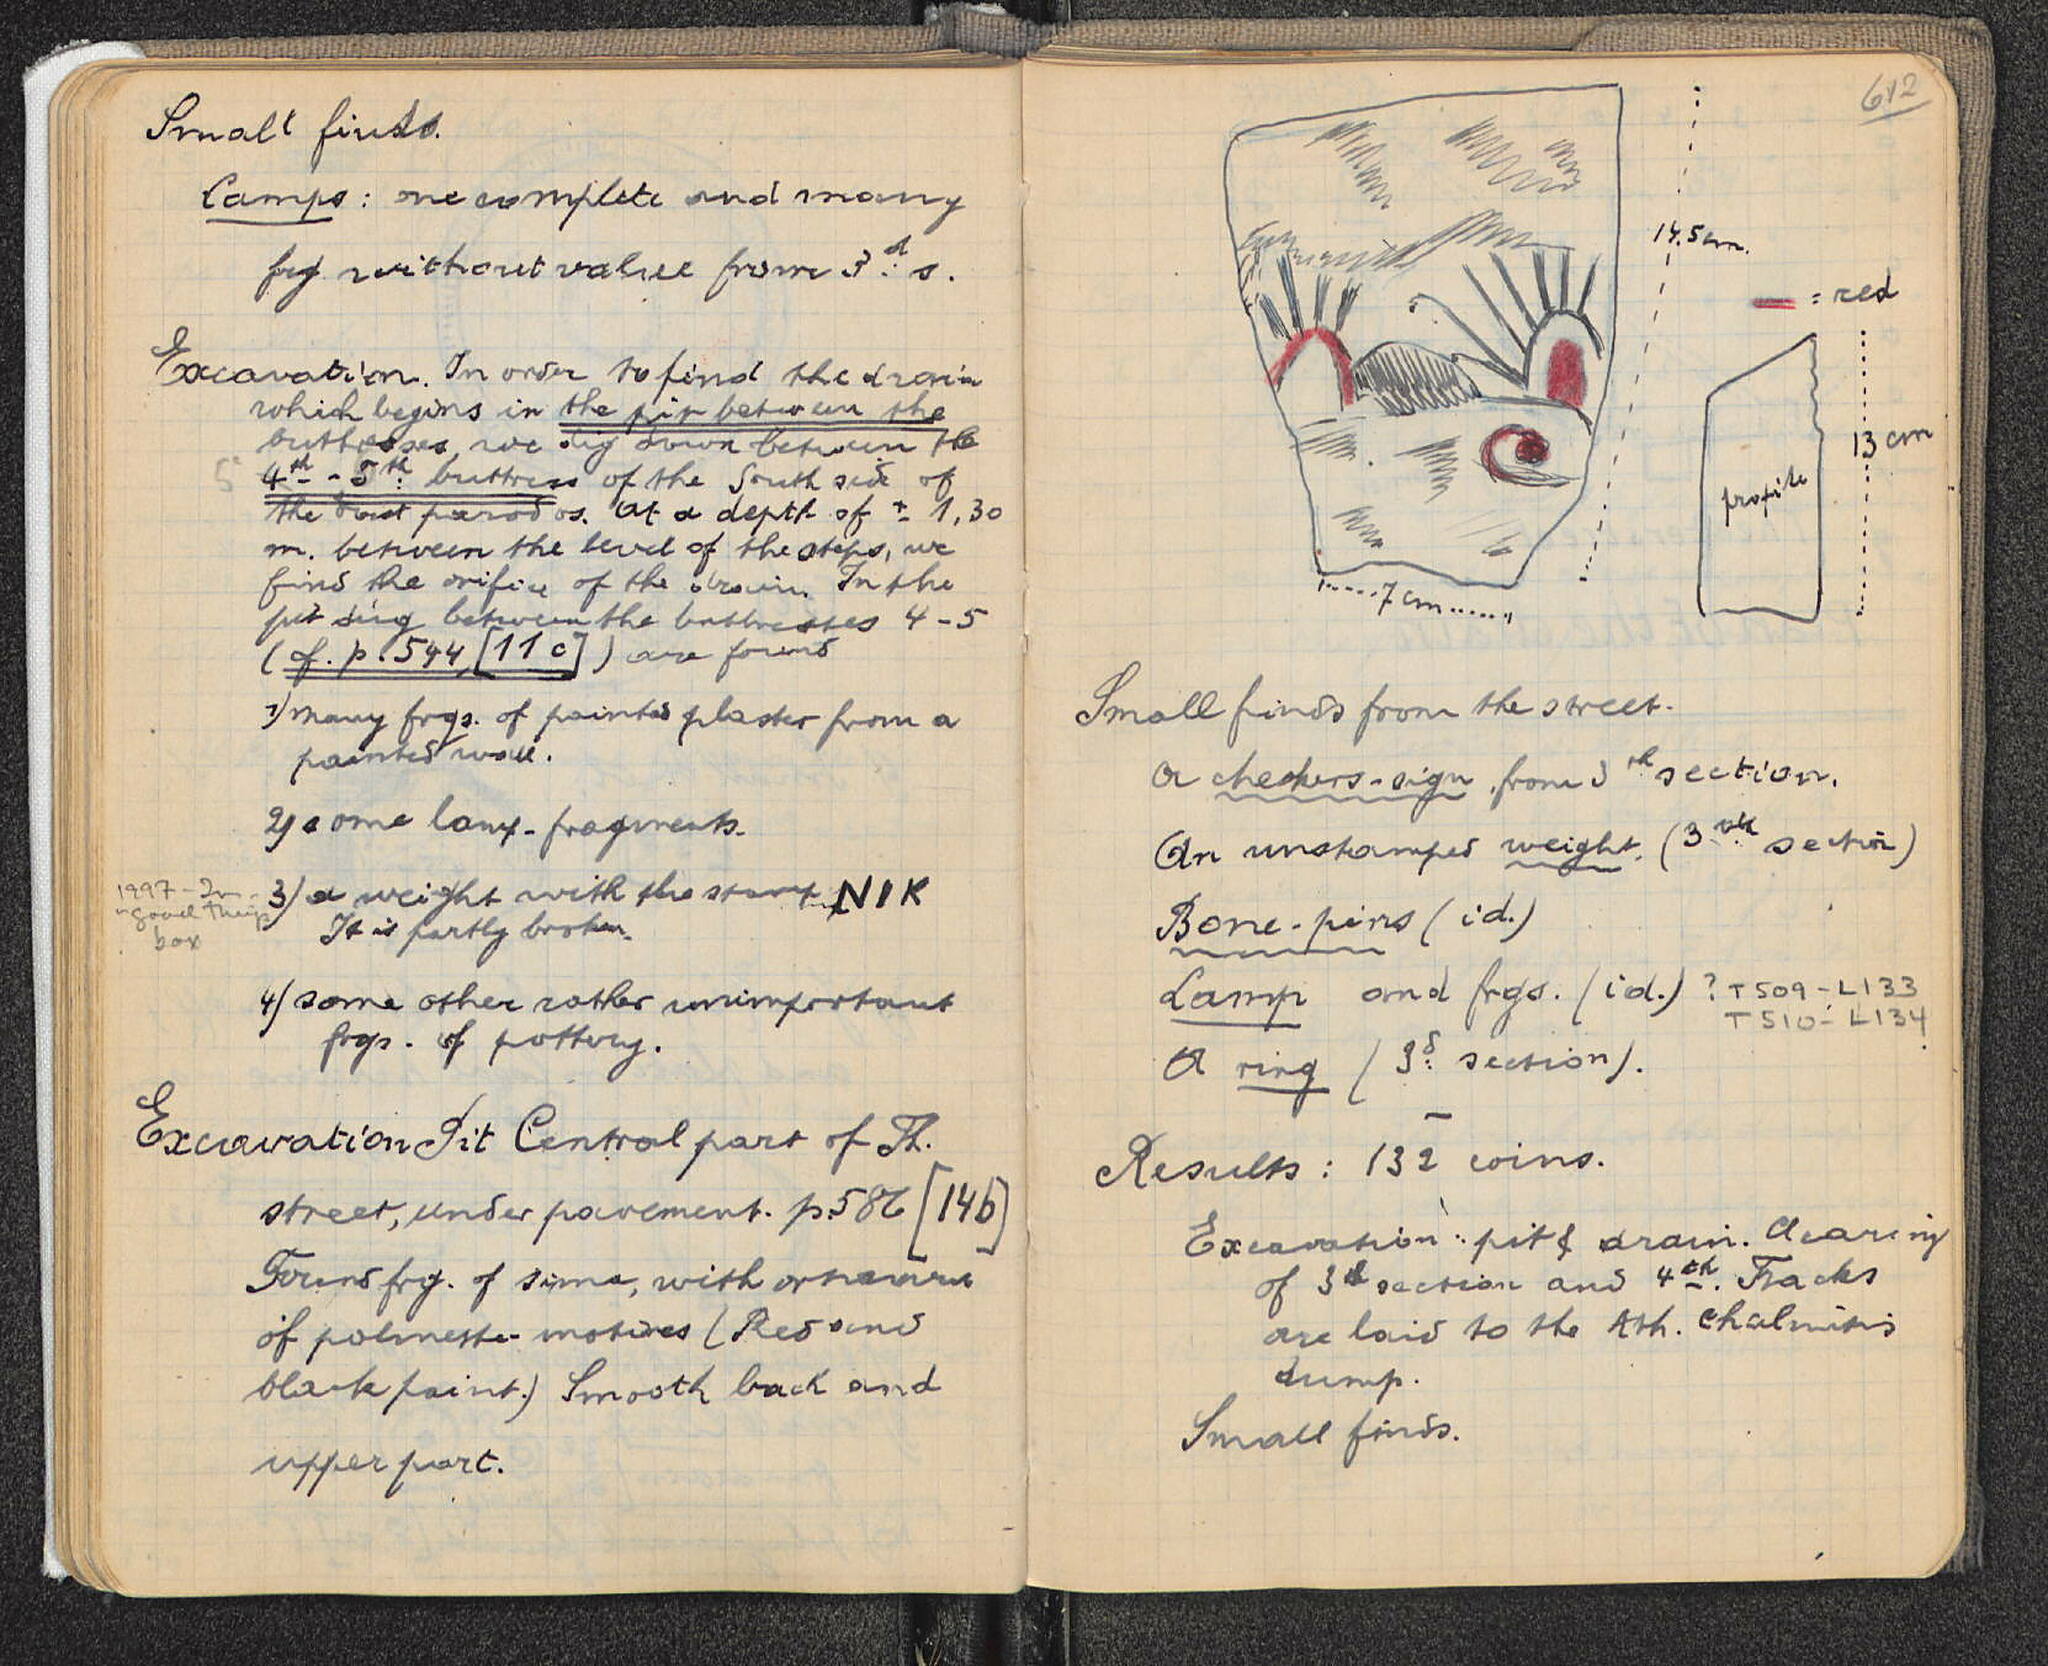 Small finds.
Lamps: one complete and many
frg without value from 3d s.
Excavation. In order to find the drain
which begins in the pit between the
buttresses, we dig down between the
4th - 5th buttress of the South side of
the East parodos. At a depth of ± 1,30
m. between the level of the steps, we
find the orifice of the drain. In the
pit dug between the buttresses 4-5
(cf. p. 544 [11c]) are found
1) many frgs. of painted plaster from a
painted wall.
2) some lamp-fragments.
1997 - In
"good things
box
3) a weight with the stamp NIK
It is partly broken.
4) some other rather unimportant
frgs. of pottery.
Excavation Pit Central part of Th.
street, under pavement. p.586 [14b]
Found frg. of sima, with ornament
of palmette-motives (Red and
black paint.) Smooth back and
upper part.
612
14.5 cm.
= red
13 cm
profile
7 cm
Small finds from the street.
A checkers-sign from 3rd section.
An unstamped weight. (3rd section)
Bone-pins (id.)
Lamp and frgs. (id.) ? T509-L133
T510-L134
A ring (3d section).
Results: 132 coins.
Excavation: pit & drain. Clearing
of 3d section and 4th. Tracks
are laid to the Ath. Chalmitis
dump.
Small finds.